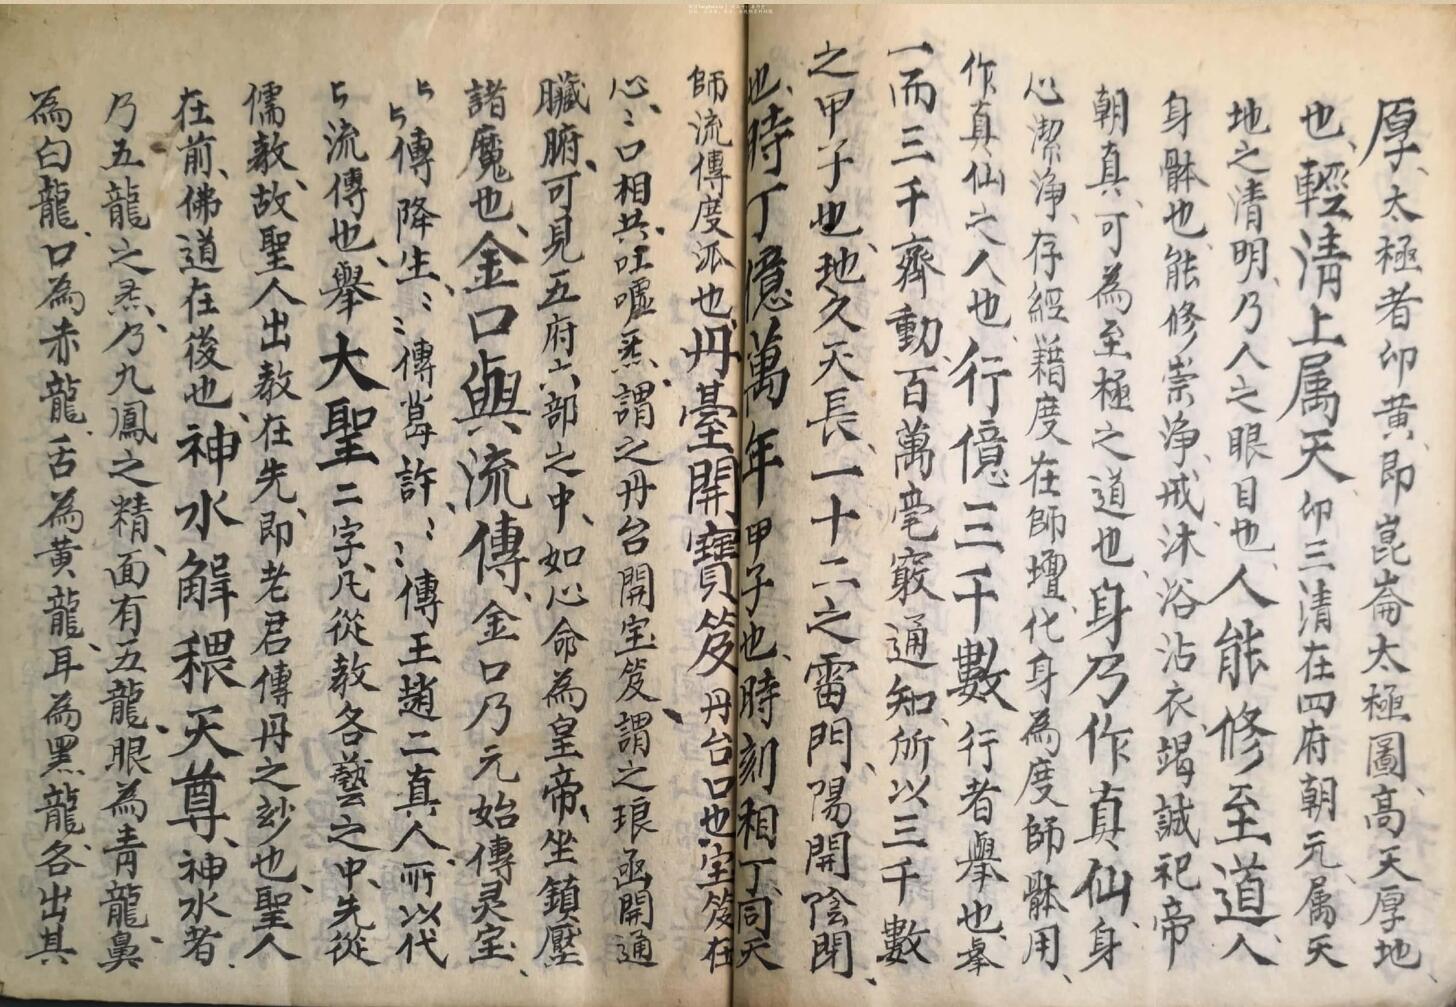 厚、太極者卬黄、即崑崙太極圖、高天厚地
也、輕清上属天卬三清在四府朝元、属天
地之清明、乃人之眼目也、人能修至道人、
身骵也、能修崇净、戒沐浴沾衣、竭誠祀帝
朝真、可為至極之道也、身乃作真仙身
心潔净、存經籍度在師壇、化身為度師骵用、
作真仙之人也、行億三千數行者舉也、舉
一而三千齊動、百萬毫竅通知、所以三千數
之甲子也、地久天長、一十二之雷門、陽開陰閉、
也、時丁億萬年甲子也、時刻相丁同天
師流傳度派也、丹臺開寶笈丹台口也、宝笈在
心、〻口相共吐嘘炁、謂之丹台開宝笈、謂之琅函開通
臟腑、可見五府六部之中、如心命為皇帝、坐鎮壓
諸魔也、金口與流傳、金口乃元始傳灵宝、
〻傳降生、〻傳許、〻傳王趙二真人、所以代
〻流傳也、舉大聖二字、凡從教各藝之中、先從
儒教、故聖人出教在先、即老君傳丹之玅也、聖人
在前、佛道在後也、神水解穢天尊、神水者、
乃五龍之炁、乃九鳳之精、面有五龍、眼為青龍、鼻
為白龍、口為赤龍、舌為黄龍、耳為黑龍、各出其